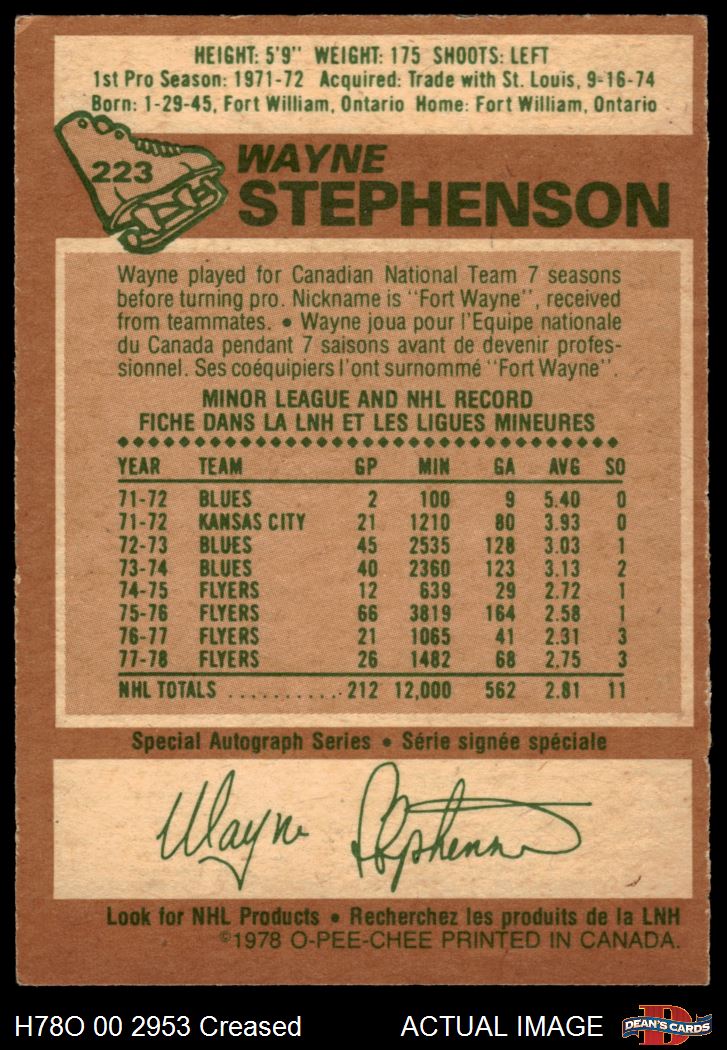 HEIGHT: 5'9" WEIGHT: 175 SHOOTS: LEFT
1st Pro Season: 1971-72 Acquired: Trade with St. Louis, 9-16-74
Born: 1-29-45, Fort William, Ontario Home: Fort William, Ontario
223
WAYNE
STEPHENSON
Wayne played for Canadian National Team 7 seasons
before turning pro. Nickname is "Fort Wayne", received
from teammates. • Wayne joua pour l'Equipe nationale
du Canada pendant 7 saisons avant de devenir profes-
sionnel. Ses coéquipiers l'ont surnommé "Fort Wayne".
MINOR LEAGUE AND NHL RECORD
FICHE DANS LA LNH ET LES LIGUES MINEURES
YEAR TEAM GP MIN GA AVG SO
71-72 BLUES 2 100 9 5.40 0
71-72 KANSAS CITY 21 1210 80 3.93 0
72-73 BLUES 45 2535 128 3.03 1
73-74 BLUES 40 2360 123 3.13 2
74-75 FLYERS 12 639 29 2.72 1
75-76 FLYERS 66 3819 164 2.58 1
76-77 FLYERS 21 1065 41 2.31 3
77-78 FLYERS 26 1482 68 2.75 3
NHL TOTALS ........... 212 12,000 562 2.81 11
Special Autograph Series • Série signée spéciale
Wayne Stephenson
Look for NHL Products • Recherchez les produits de la LNH
©1978 O-PEE-CHEE PRINTED IN CANADA.
H78O 00 2953 Creased ACTUAL IMAGE
D
DEAN'S CARDS